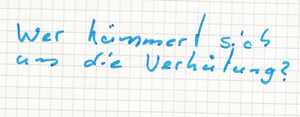 Wer kümmert sich
um die Verhütung?